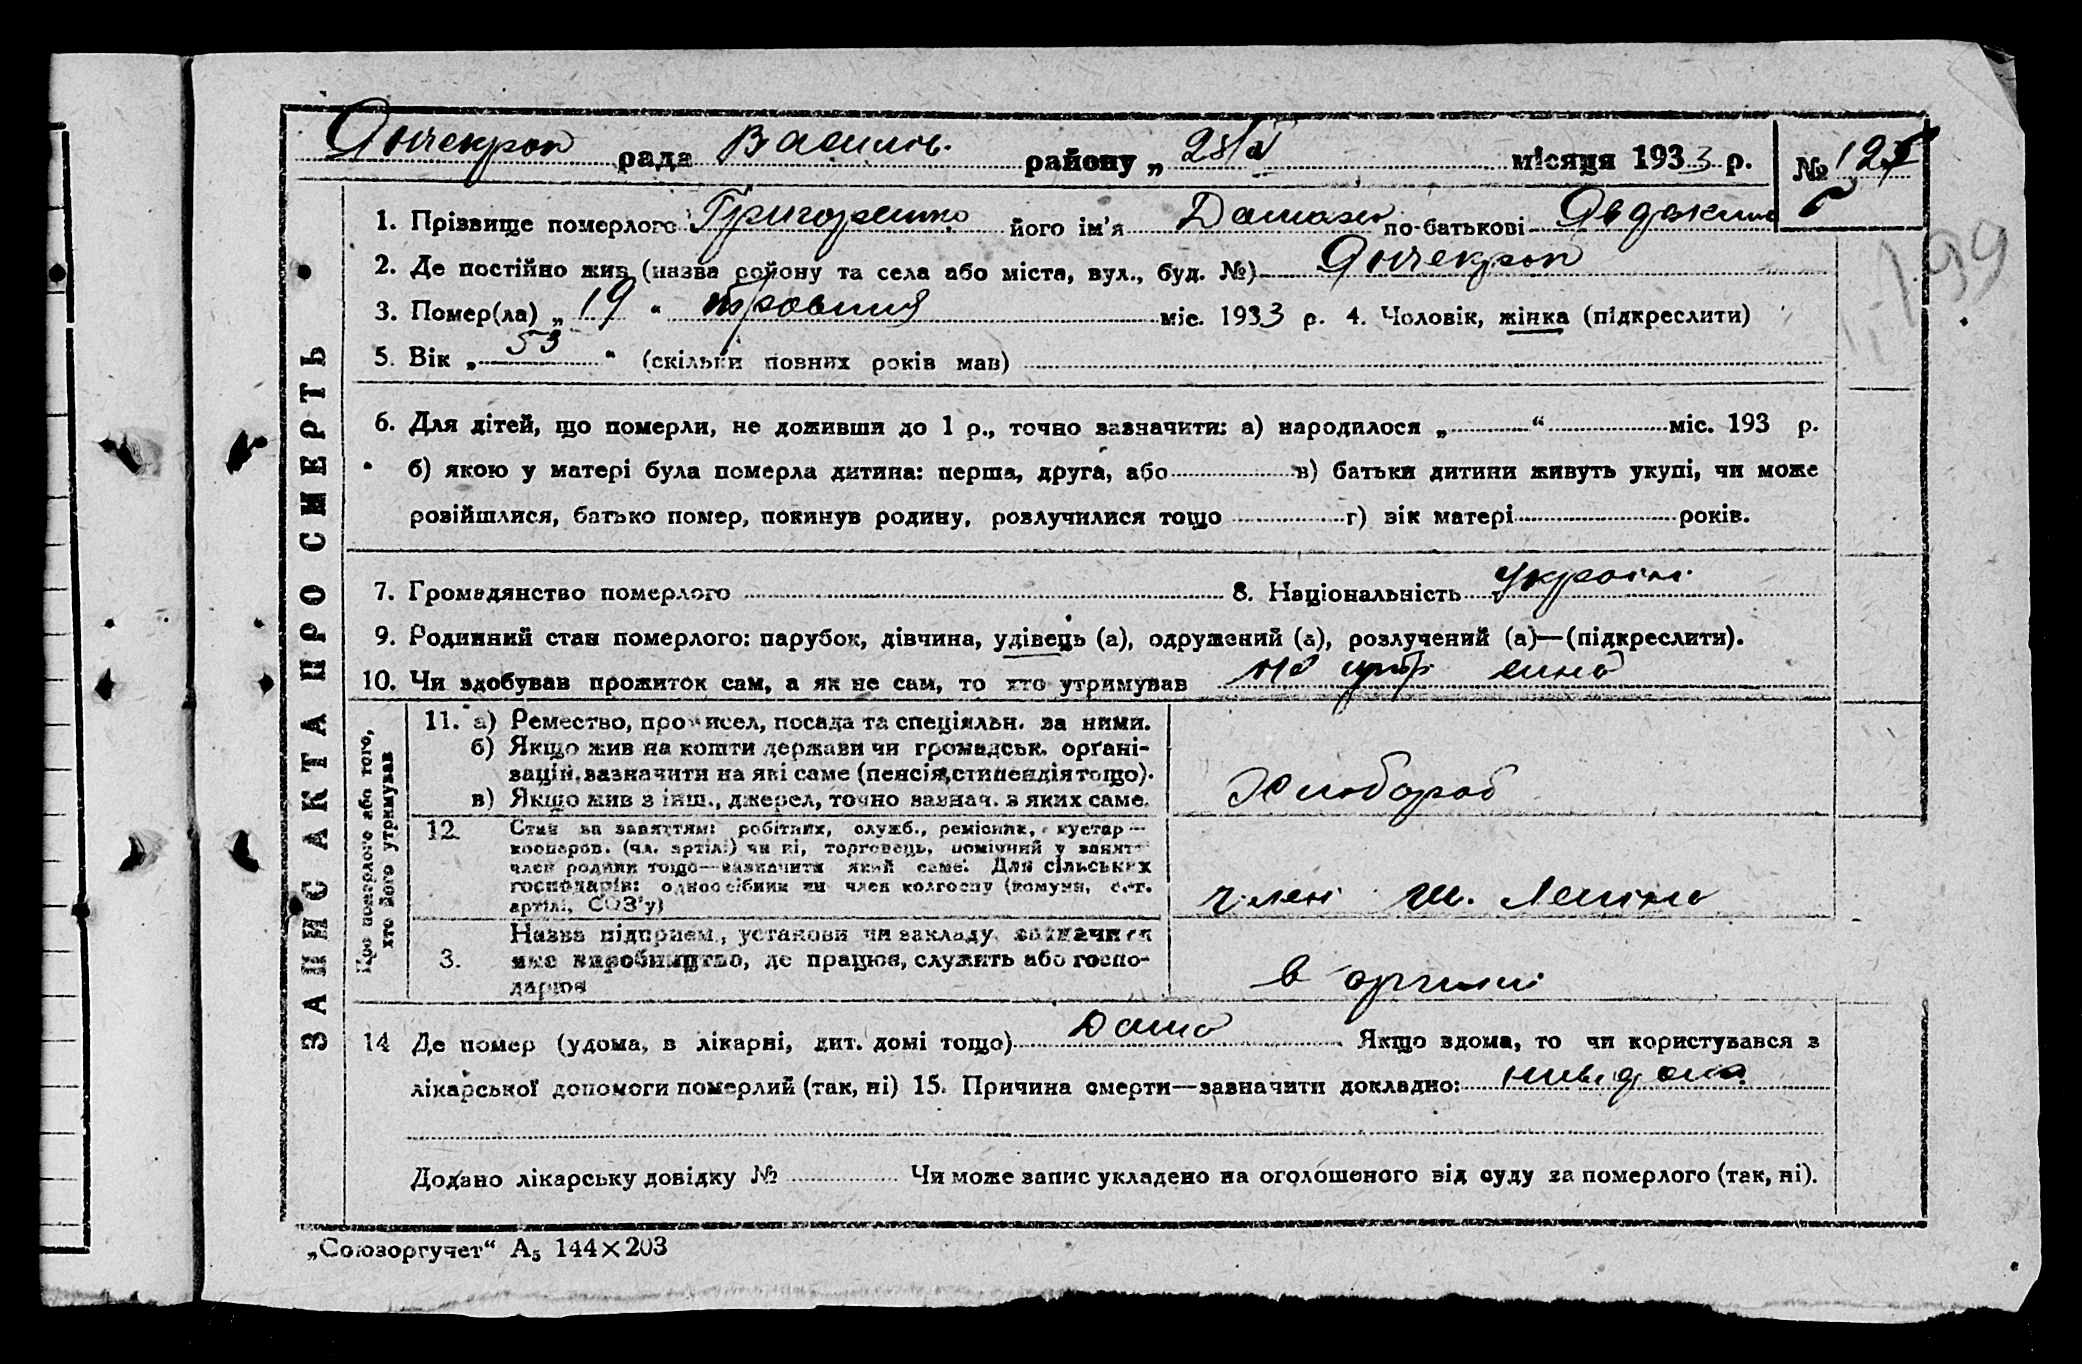 Янчекрак рада Василів. району „ 28/V місяця 1933 р. № 125
1. Прізвище померлого Григоренко його ім'я Домаха по-батькові Явдоким
2. Де постійно жив (назва району та села або міста, вул., буд. №) Янчекрак
3. Помер(ла) „ 19 “ травня міс. 1933 р. 4. Чоловік, жінка (підкреслити)
5. Вік „ 53 “ (скільки повних років мав)
6. Для дітей, що померли, не доживши до 1 р., точно зазначити: а) народилося „ “ міс. 193 р.
б) якою у матері була померла дитина: перша, друга, або в) батьки дитини живуть укупі, чи може
розійшлися, батько помер, покинув родину, розлучилися тощо г) вік матері років.
7. Громадянство померлого 8. Національність Україн.
9. Родинний стан померлого: парубок, дівчина, удівець (а), одружений (а), розлучений (а)—(підкреслити).
10. Чи здобував прожиток сам, а як не сам, то хто утримував на утр сина
ЗАПИС АКТА ПРО СМЕРТЬ
Про померлого або того, хто його утримував
11. а) Ремество, промисел, посада та спеціяльн. за ними.
б) Якщо жив на кошти держави чи громадськ. органі-
зацій, зазначити на які саме (пенсія, стипендія тощо).
в) Якщо жив з інш., джерел, точно зазнач. з яких саме.
Хлібороб
12. Стан за заняттям: робітник, служб., ремісник, кустар—
кооперов. (чл. артілі) чи ні, торговець, помічний у занятті
член родини тощо—зазначити який саме. Для сільських
господарів: одноосібник чи член колгоспу (комуни, с.-г.
артілі, СОЗ'у)
член ім. Леніна
3. Назва підприєм., установи чи закладу, зазначити
яке виробництво, де працює, служить або госпо-
дарює
в артилі
14 Де помер (удома, в лікарні, дит. домі тощо) Дома Якщо вдома, то чи користувався з
лікарської допомоги померлий (так, ні) 15. Причина смерти—зазначити докладно: нивідома
Додано лікарську довідку № Чи може запис укладено на оголошеного від суду за померлого (так, ні).
„Союзоргучет“ А5 144×203